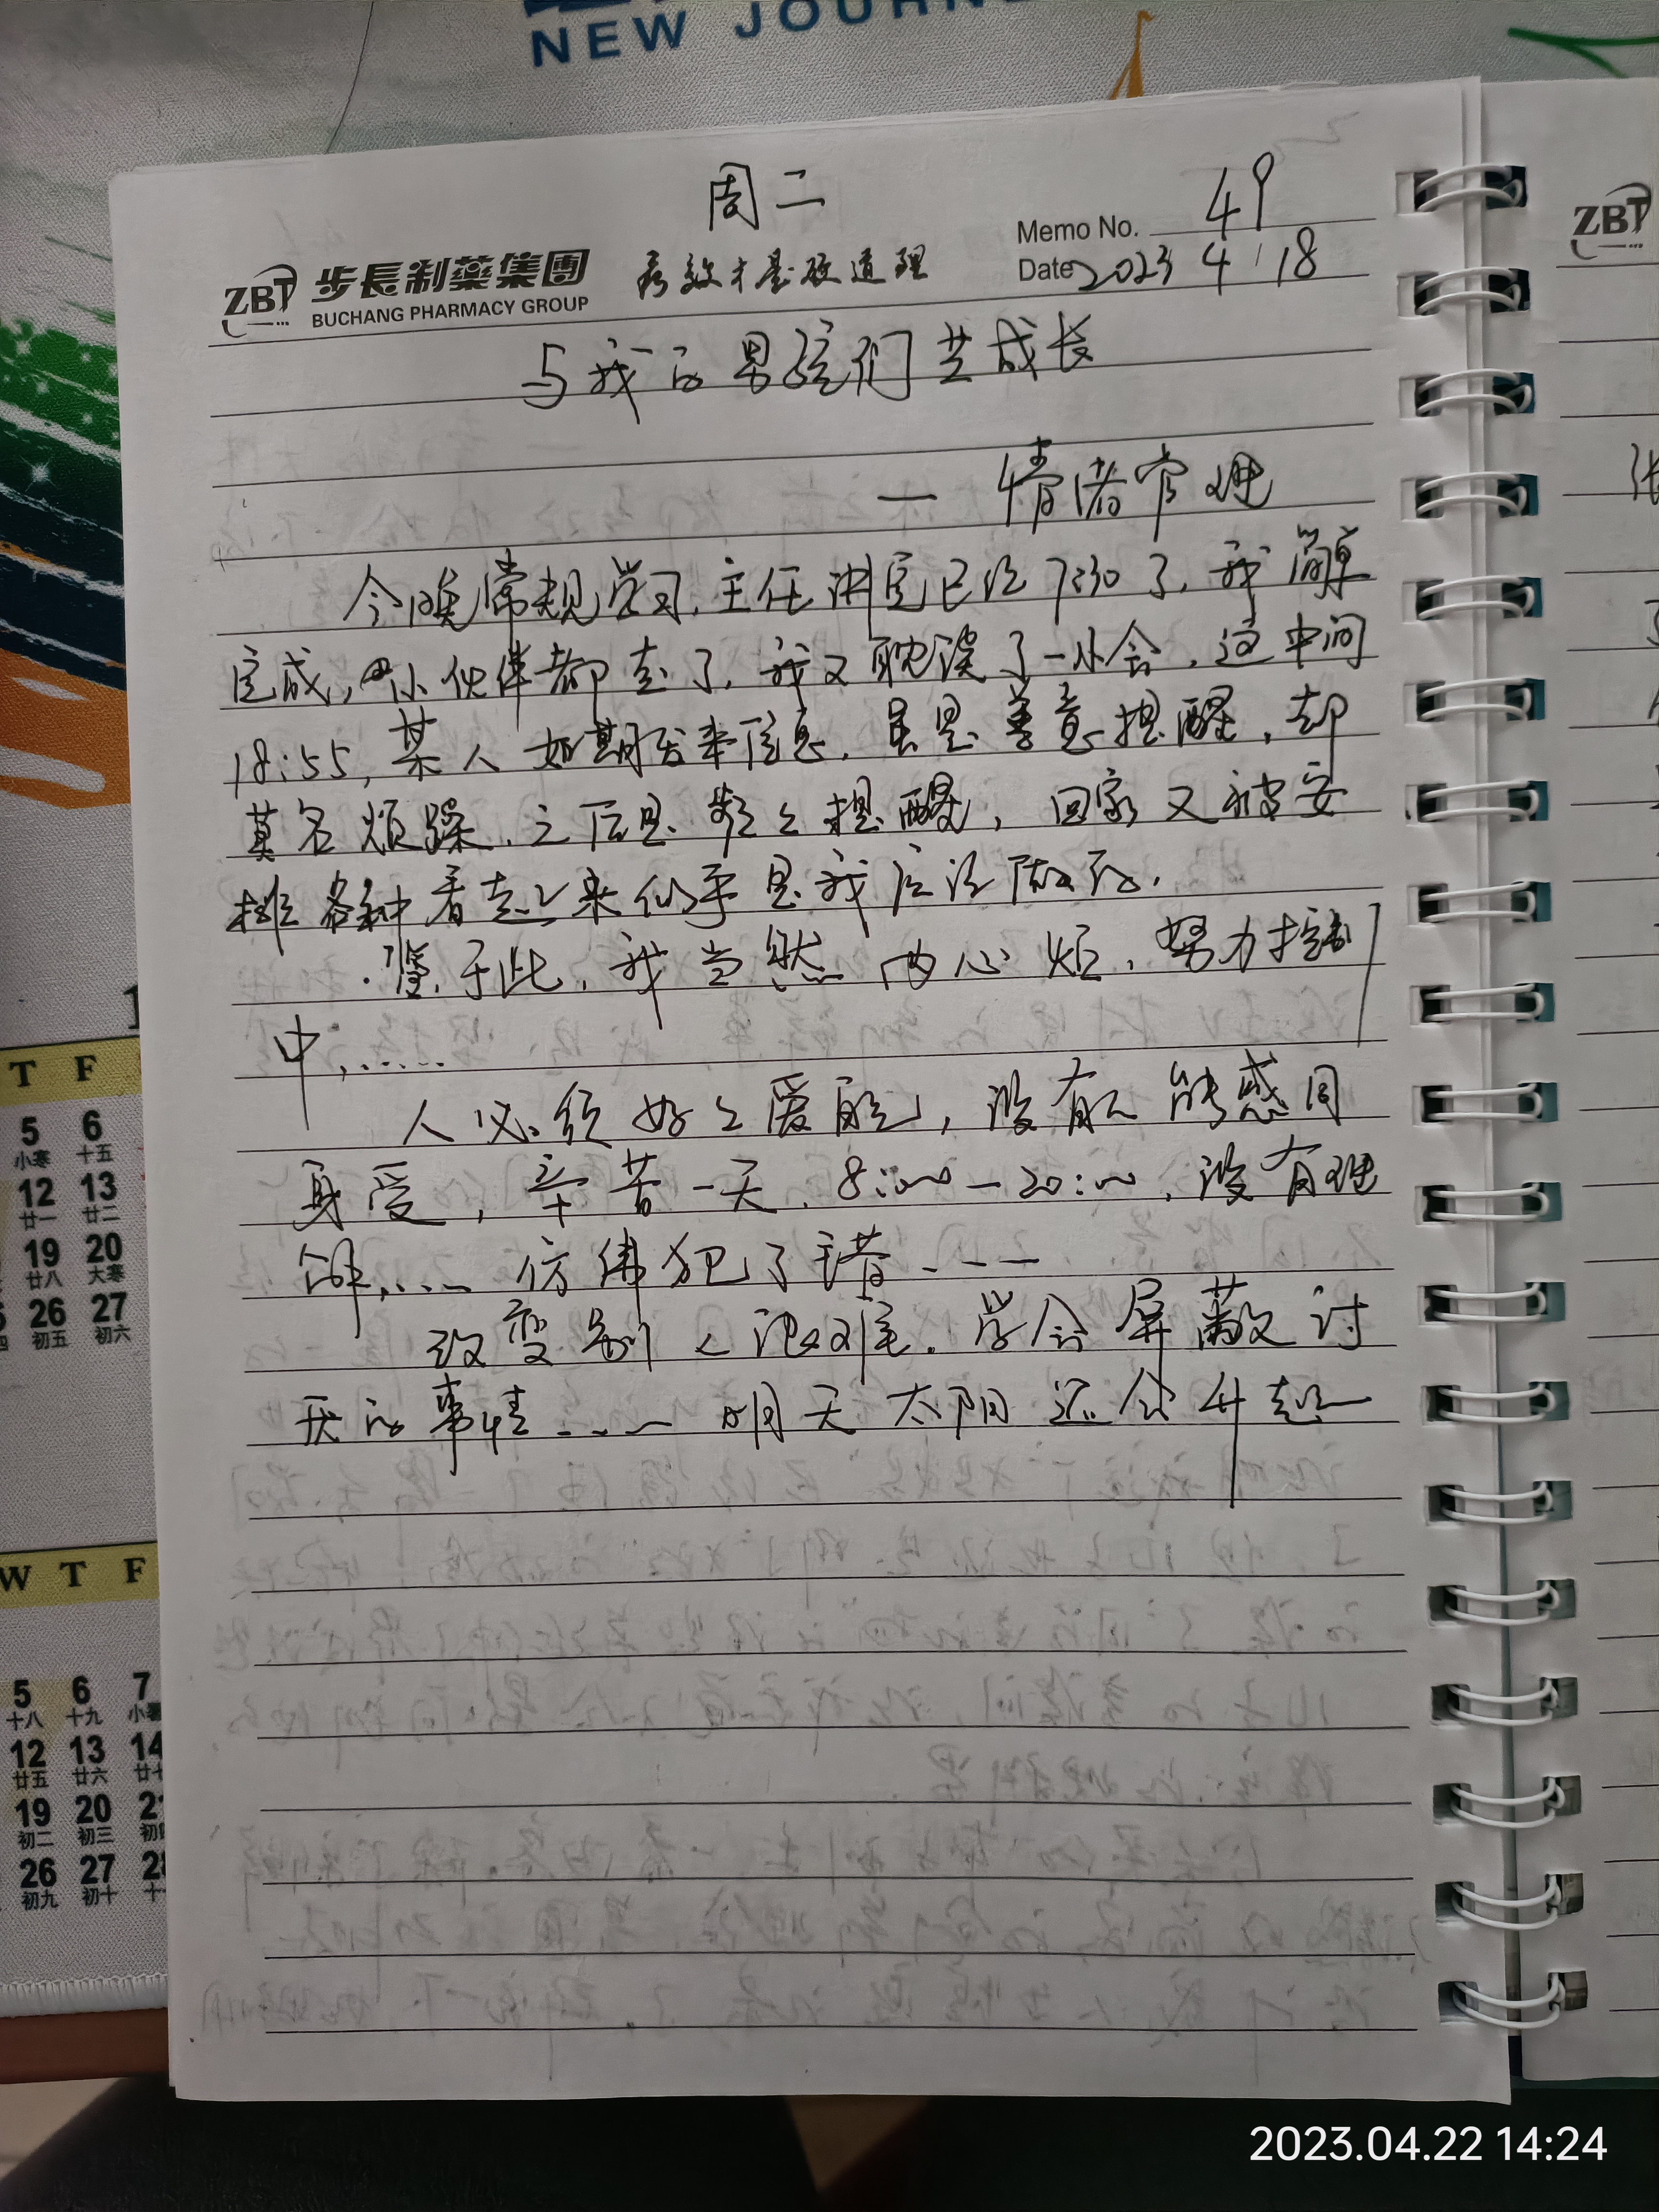 NEW JOURNE
周二
Memo No. 49
ZBT 步長制藥集團 疗效才是硬道理
BUCHANG PHARMACY GROUP
Date 2023 4 18
与我的男孩们共成长
— 情绪管理
今晚常规学习,主任讲完已经7:30了,我简单
完成,小伙伴都走了,我又耽误了一小会,这中间
18:55,某人如期发来信息,虽是善意提醒,却
莫名烦躁,之后是频々提醒,回家又被安
排各种看起来似乎是我应该做的.
鉴于此,我当然内心烦,努力控制
中,……
人必须好々爱自己,没有人能感同
身受,辛苦一天,8:00—20:00,没有理
解,…… 仿佛犯了错 ---
改变别人很难.学会屏蔽讨
厌的事情 …… 明天太阳还会升起—
ZBT
T F
5 6
小寒 十五
12 13
廿一 廿二
19 20
廿八 大寒
26 27
初五 初六
W T F
5 6 7
十八 十九 小暑
12 13 14
廿五 廿六 廿七
19 20 21
初二 初三 初四
26 27 28
初九 初十 十
2023.04.22 14:24